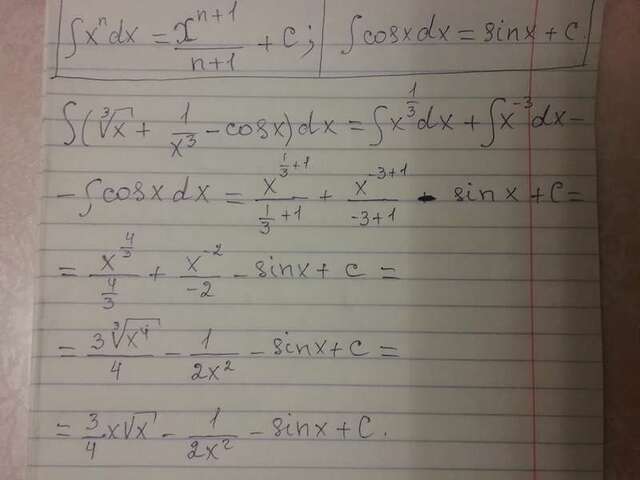 ∫xⁿdx = xⁿ⁺¹/(n+1) + C; | ∫cosxdx = sinx + C.
∫(∛x + 1/x³ - cosx)dx = ∫x^(1/3)dx + ∫x⁻³dx -
- ∫cosxdx = x^(1/3+1)/(1/3+1) + x^(-3+1)/(-3+1) - sinx + C =
= x^(4/3)/(4/3) + x⁻²/(-2) - sinx + C =
= 3∛(x⁴)/4 - 1/(2x²) - sinx + C =
= 3/4 x√x - 1/(2x²) - sinx + C.